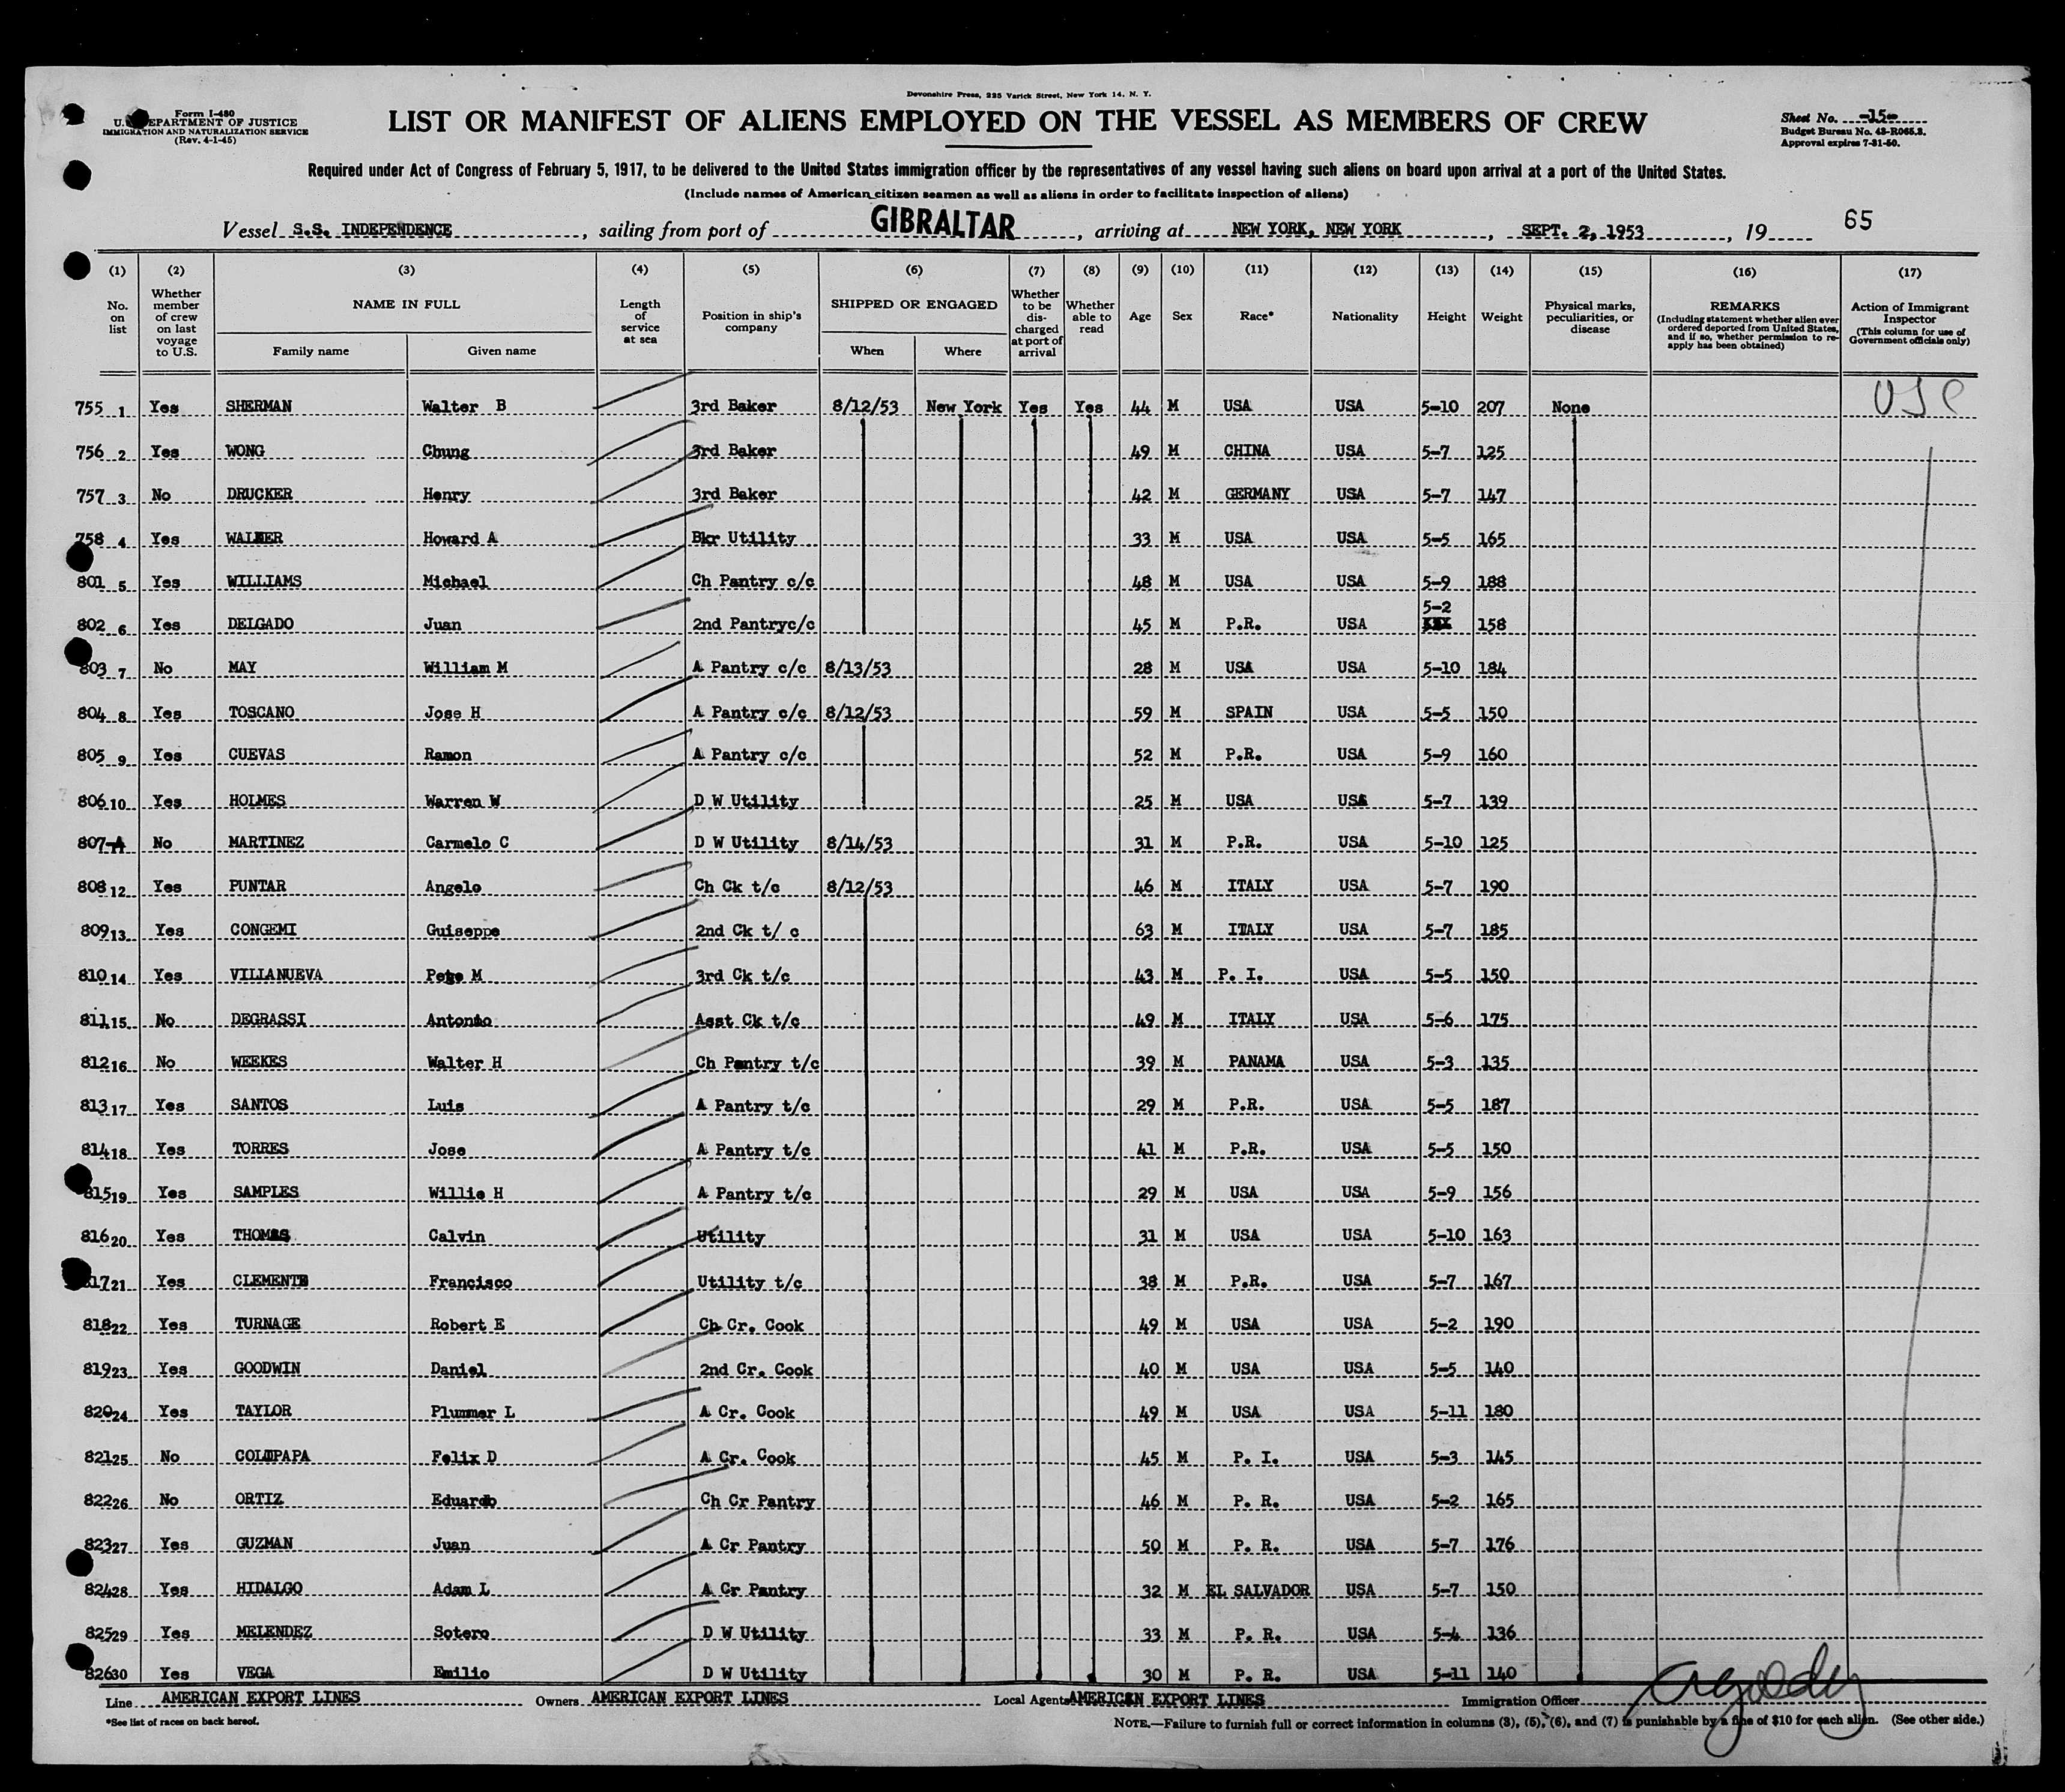 Devonshire Press, 225 Varick Street, New York 14, N. Y.
Form I-480
U. DEPARTMENT OF JUSTICE
IMMIGRATION AND NATURALIZATION SERVICE
(Rev. 4-1-45)
LIST OR MANIFEST OF ALIENS EMPLOYED ON THE VESSEL AS MEMBERS OF CREW
Sheet No. -15-
Budget Bureau No. 43-R065.3.
Approval expires 7-31-50.
Required under Act of Congress of February 5, 1917, to be delivered to the United States immigration officer by the representatives of any vessel having such aliens on board upon arrival at a port of the United States.
(Include names of American citizen seamen as well as aliens in order to facilitate inspection of aliens)
Vessel S.S. INDEPENDENCE, sailing from port of GIBRALTAR, arriving at NEW YORK, NEW YORK, SEPT. 2, 1953, 19 65
(1) (2) (3) (4) (5) (6) (7) (8) (9) (10) (11) (12) (13) (14) (15) (16) (17)
No. on list
Whether member of crew on last voyage to U.S.
NAME IN FULL
Family name
Given name
Length of service at sea
Position in ship's company
SHIPPED OR ENGAGED
When
Where
Whether to be discharged at port of arrival
Whether able to read
Age
Sex
Race*
Nationality
Height
Weight
Physical marks, peculiarities, or disease
REMARKS
(Including statement whether alien ever ordered deported from United States, and if so, whether permission to re-apply has been obtained)
Action of Immigrant Inspector
(This column for use of Government officials only)
755 1 Yes SHERMAN Walter B 3rd Baker 8/12/53 New York Yes Yes 44 M USA USA 5-10 207 None USC
756 2 Yes WONG Chung 3rd Baker 49 M CHINA USA 5-7 125
757 3 No DRUCKER Henry 3rd Baker 42 M GERMANY USA 5-7 147
758 4 Yes Howard A Bkr Utility 33 M USA USA 5-5 165
801 5 Yes WILLIAMS Michael Ch Pantry c/c 48 M USA USA 5-9 188
802 6 Yes DELGADO Juan 2nd Pantryc/c 45 M P.R. USA 5-2 XXX 158
803 7 No MAY William M A Pantry c/c 8/13/53 28 M USA USA 5-10 184
804 8 Yes TOSCANO Jose H A Pantry c/c 8/12/53 59 M SPAIN USA 5-5 150
805 9 Yes CUEVAS Ramon A Pantry c/c 52 M P.R. USA 5-9 160
806 10 Yes HOLMES Warren W D W Utility 25 M USA USA 5-7 139
807 No MARTINEZ Carmelo C D W Utility 8/14/53 31 M P.R. USA 5-10 125
808 12 Yes PUNTAR Angelo Ch Ck t/c 8/12/53 46 M ITALY USA 5-7 190
809 13 Yes CONGEMI Guiseppe 2nd Ck t/ c 63 M ITALY USA 5-7 185
810 14 Yes VILLANUEVA Pete M 3rd Ck t/c 43 M P. I. USA 5-5 150
811 15 No DEGRASSI Antonio Asst Ck t/c 49 M ITALY USA 5-6 175
812 16 No WEEKES Walter H Ch Pantry t/c 39 M PANAMA USA 5-3 135
813 17 Yes SANTOS Luis A Pantry t/c 29 M P.R. USA 5-5 187
814 18 Yes TORRES Jose A Pantry t/c 41 M P.R. USA 5-5 150
815 19 Yes SAMPLES Willie H A Pantry t/c 29 M USA USA 5-9 156
816 20 Yes THOMAS Calvin Utility 31 M USA USA 5-10 163
817 21 Yes CLEMENTE Francisco Utility t/c 38 M P.R. USA 5-7 167
818 22 Yes TURNAGE Robert E Ch Cr. Cook 49 M USA USA 5-2 190
819 23 Yes GOODWIN Daniel 2nd Cr. Cook 40 M USA USA 5-5 140
820 24 Yes TAYLOR Plummer L A Cr. Cook 49 M USA USA 5-11 180
821 25 No Felix D A Cr. Cook 45 M P. I. USA 5-3 145
822 26 No ORTIZ Eduardo Ch Cr Pantry 46 M P. R. USA 5-2 165
823 27 Yes GUZMAN Juan A Cr Pantry 50 M P. R. USA 5-7 176
824 28 Yes HIDALGO Adam L A Cr Pantry 32 M EL SALVADOR USA 5-7 150
825 29 Yes MELENDEZ Sotero D W Utility 33 M P. R. USA 5-4 136
826 30 Yes VEGA Emilio D W Utility 30 M P. R. USA 5-11 140
Line AMERICAN EXPORT LINES Owners AMERICAN EXPORT LINES Local Agents AMERICAN EXPORT LINES Immigration Officer
*See list of races on back hereof.
NOTE.—Failure to furnish full or correct information in columns (3), (5), (6), and (7) is punishable by a fine of $10 for each alien. (See other side.)